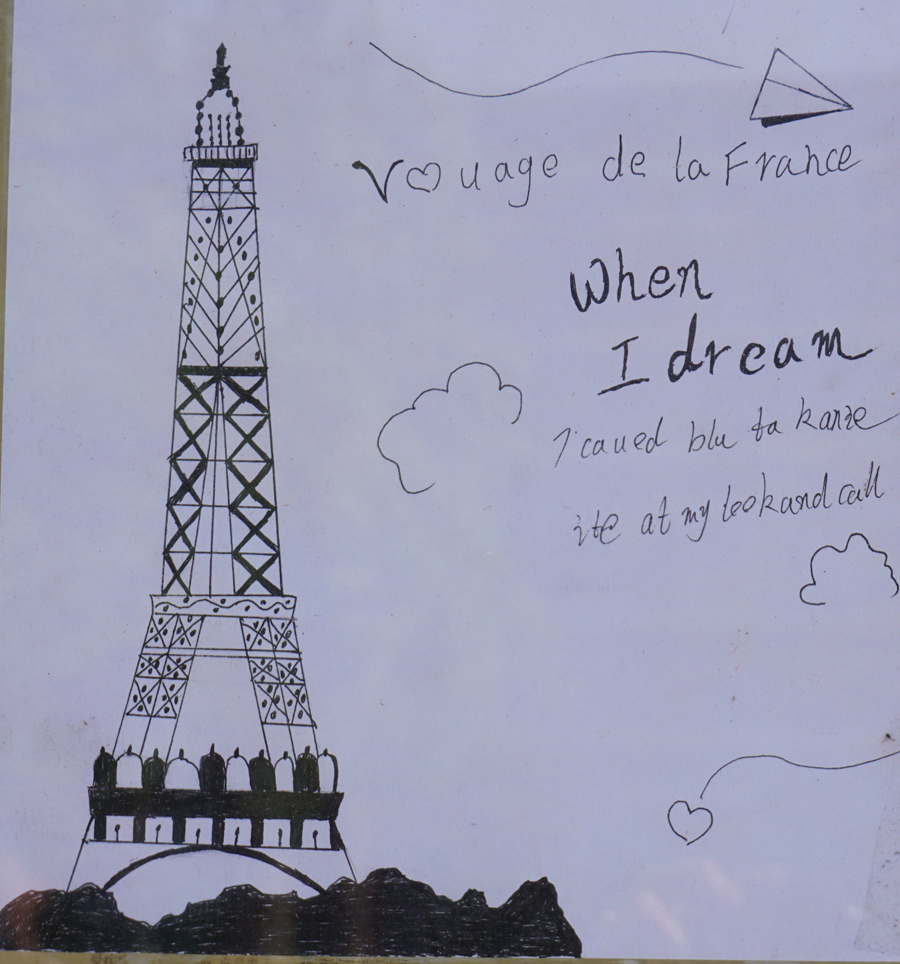 Vouage de la France
When
I dream
I caued blu ta kanze
ite at my leekand call